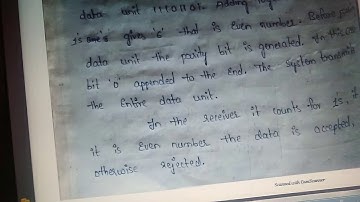 data unit 1110001. Adding
1's gives '5' that is Even number. Before
data unit the parity bit is generated. In this
bit '0' appended to the End. The system transmit
the Entire data unit.
In the receiver it counts for 1s, if
it is Even number the data is accepted,
otherwise rejected.
Scanned with CamScanner